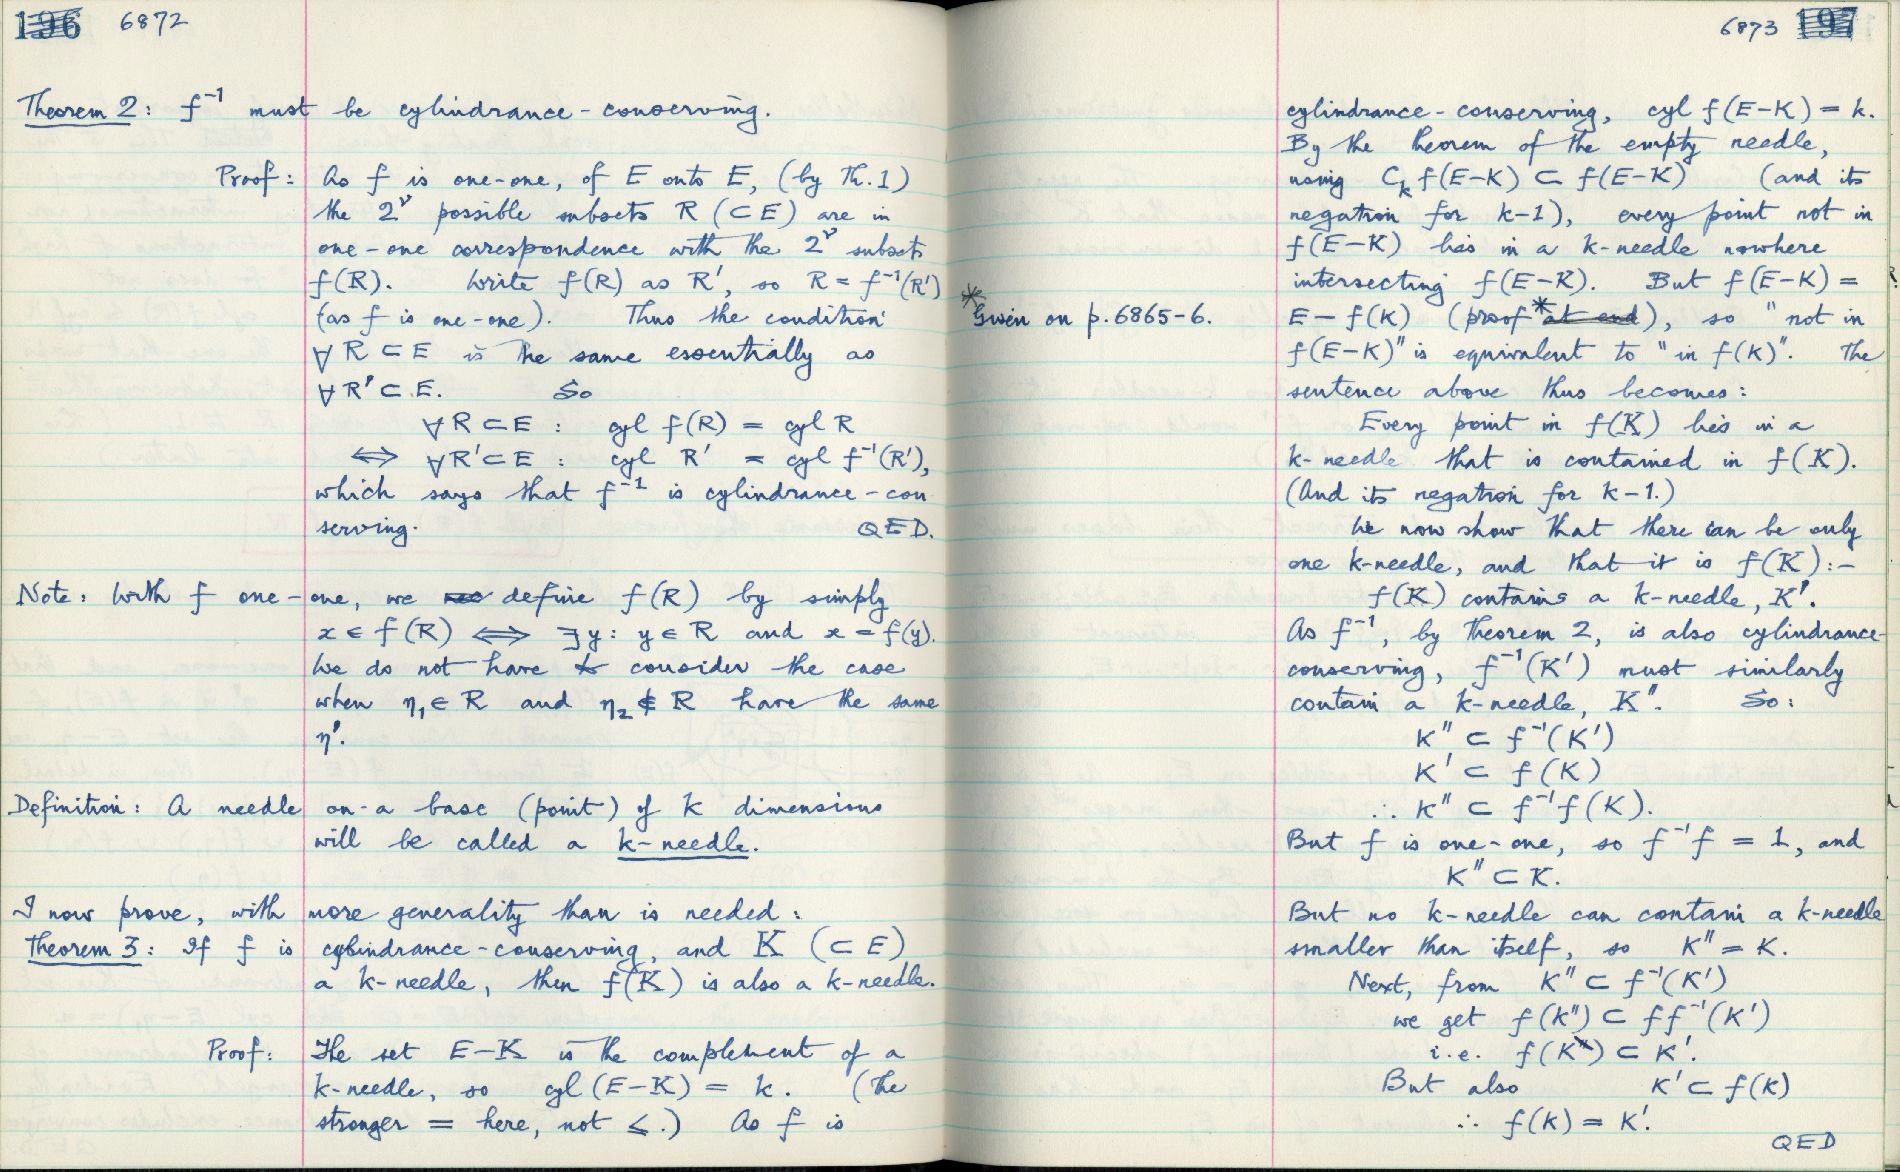 196 6872
Theorem 2: f⁻¹ must be cylindrance-conserving.
Proof: As f is one-one, of E onto E, (by Th.1)
the 2^ν possible subsets R (⊂E) are in
one-one correspondence with the 2^ν subsets
f(R). Write f(R) as R′, so R = f⁻¹(R′)
(as f is one-one). Thus the condition
∀R⊂E is the same essentially as
∀R′⊂E. So
∀R⊂E : cyl f(R) = cyl R
⟺ ∀R′⊂E : cyl R′ = cyl f⁻¹(R′),
which says that f⁻¹ is cylindrance-con
serving. QED.
Note: With f one-one, we define f(R) by simply
x ∈ f(R) ⟺ ∃y: y ∈ R and x = f(y).
We do not have to consider the case
when η₁ ∈ R and η₂ ∉ R have the same
η′.
Definition: A needle on a base (point) of k dimensions
will be called a k-needle.
I now prove, with more generality than is needed:
Theorem 3: If f is cylindrance-conserving, and K (⊂E)
a k-needle, then f(K) is also a k-needle.
Proof: The set E−K is the complement of a
k-needle, so cyl (E−K) = k. (The
stronger = here, not ≤.) As f is
6873 197
cylindrance-conserving, cyl f(E−K) = k.
By the theorem of the empty needle,
using C_k f(E−K) ⊂ f(E−K) (and its
negation for k−1), every point not in
f(E−K) lies in a k-needle nowhere
intersecting f(E−K). But f(E−K) =
E − f(K) (proof * at end), so "not in
* Given on p.6865-6.
f(E−K)" is equivalent to "in f(K)". The
sentence above thus becomes:
Every point in f(K) lies in a
k-needle that is contained in f(K).
(And its negation for k−1.)
We now show that there can be only
one k-needle, and that it is f(K):–
f(K) contains a k-needle, K′.
As f⁻¹, by Theorem 2, is also cylindrance-
conserving, f⁻¹(K′) must similarly
contain a k-needle, K″. So:
K″ ⊂ f⁻¹(K′)
K′ ⊂ f(K)
∴ K″ ⊂ f⁻¹f(K).
But f is one-one, so f⁻¹f = 1, and
K″ ⊂ K.
But no k-needle can contain a k-needle
smaller than itself, so K″ = K.
Next, from K″ ⊂ f⁻¹(K′)
we get f(K″) ⊂ ff⁻¹(K′)
i.e. f(K) ⊂ K′.
But also K′ ⊂ f(K)
∴ f(K) = K′.
QED